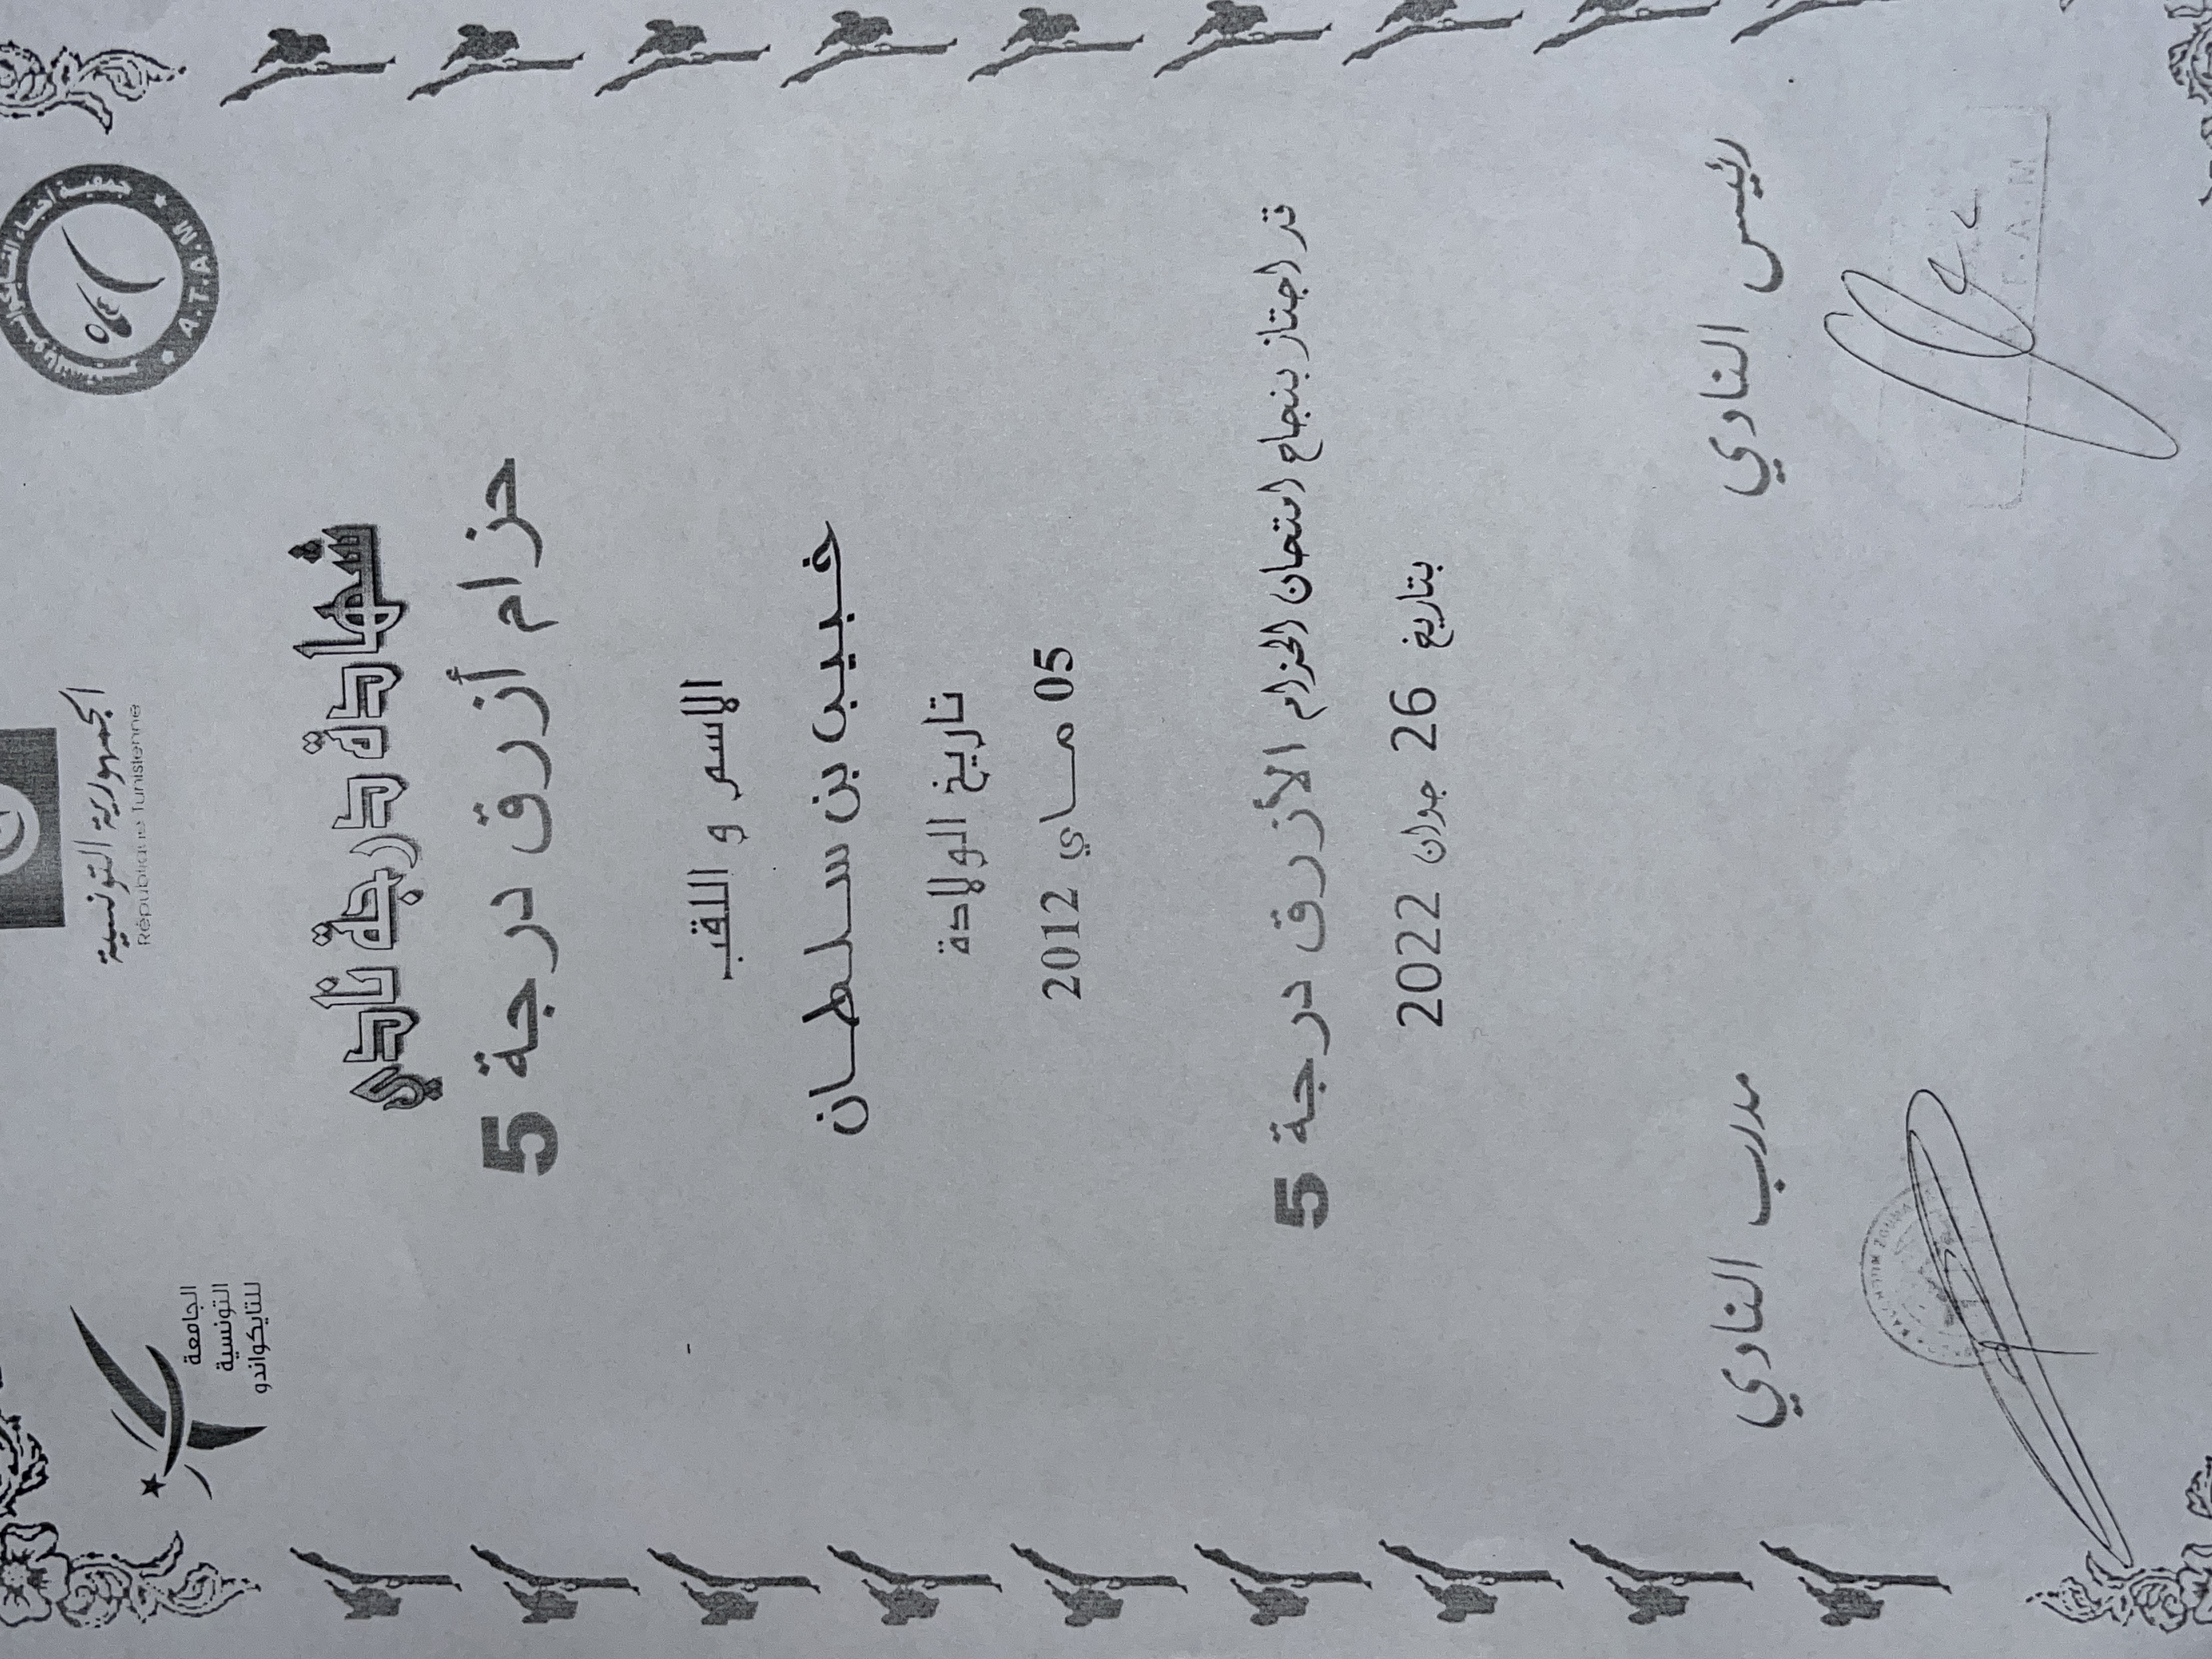 الجمهورية التونسية
République Tunisienne
الجامعة
التونسية
للتايكواندو
A.T.A.W.M
شهادة درجة نادي
حزام أزرق درجة 5
الاسم و اللقب
خبيب بن سلطان
تاريخ الولادة
05 ماي 2012
قد اجتاز بنجاح امتحان الحزام الأزرق درجة 5
بتاريخ 26 جوان 2022
رئيس النادي
مدرب النادي